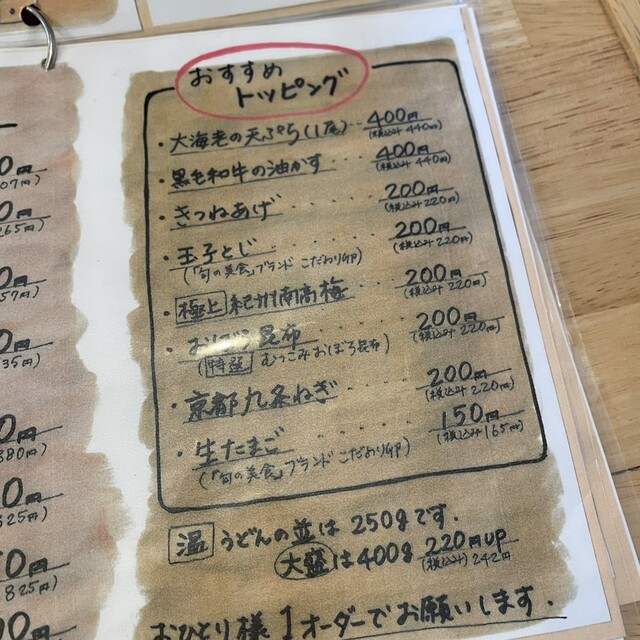 おすすめ
トッピング
・大海老の天ぷら(1尾)… 400円
(税込み440円)
・黒毛和牛の油かす 400円
(税込み440円)
・きつねあげ ・・・・ 200円
(税込み220円)
・玉子とじ ・・・・・ 200円
(税込み220円)
(「旬の美食」ブランド こだわり卵)
・極上 紀州南高梅 200円
(税込み220円)
・おぼろ昆布 ・・・・ 200円
(税込み220円)
(特選 むつこみおぼろ昆布)
・京都九条ねぎ ・・・ 200円
(税込み220円)
・生たまご ・・・・・ 150円
(税込み165円)
(「旬の美食」ブランド こだわり卵)
温 うどんの並は250gです.
大盛は400g 220円UP
(税込み)242円
おひとり様1オーダーでお願いします.
07円)
265円)
57円)
35円)
380円)
825円)
825円)